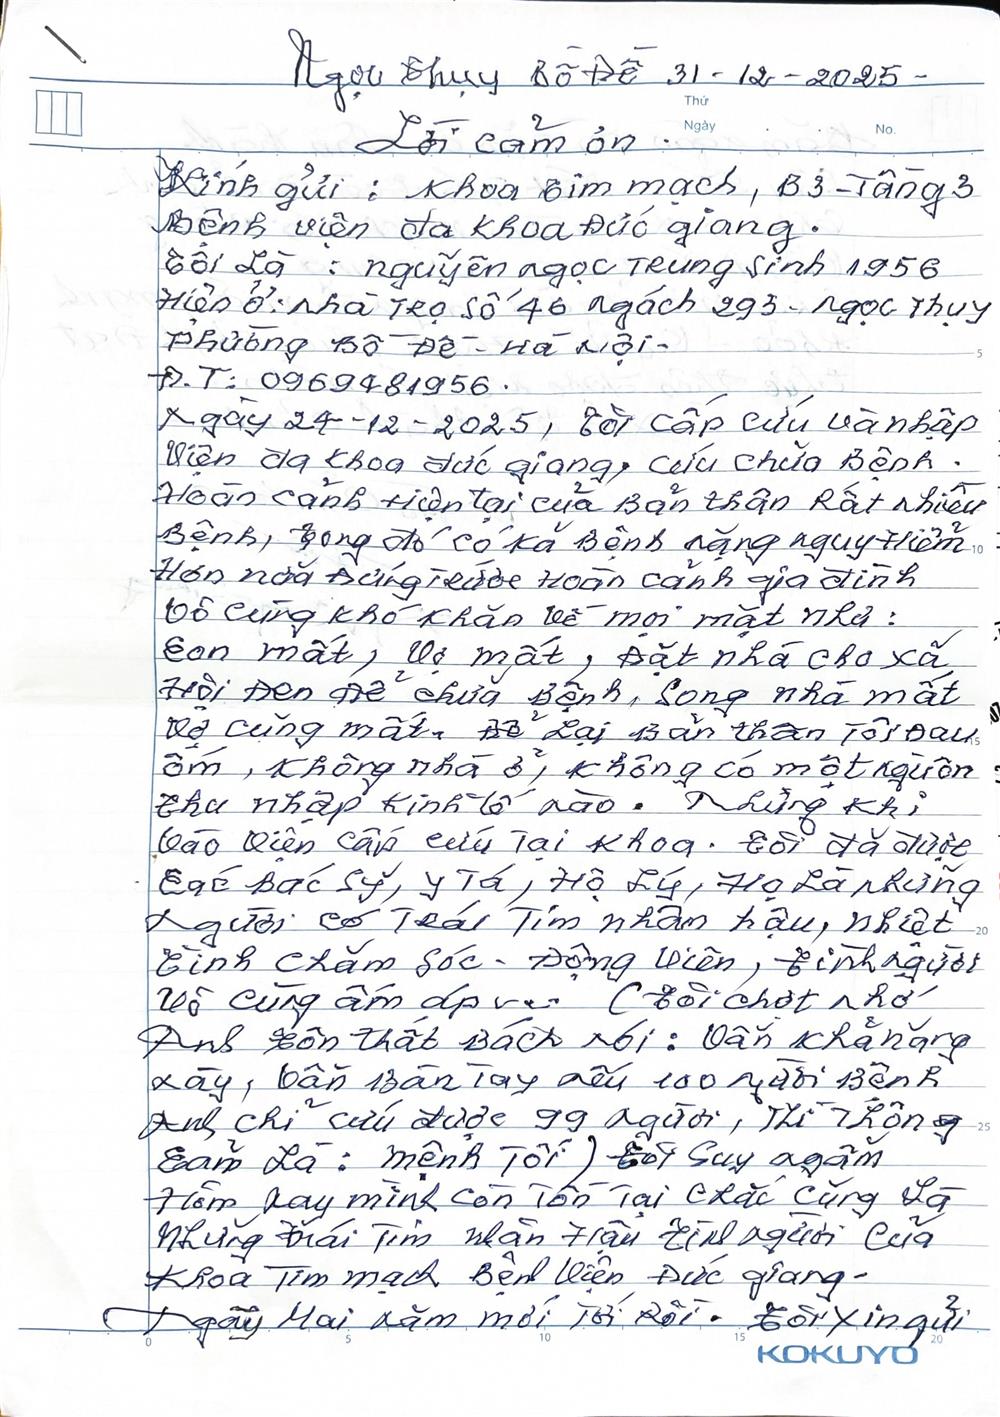 Ngọc Thụy Bồ Đề 31-12-2025-
Thứ
Ngày
No.
Lời cảm ơn.
Kính gửi: Khoa tim mạch, B3-Tầng 3
Bệnh viện đa khoa Đức giang.
Tôi Là: nguyễn ngọc Trung Sinh 1956
Hiện ở: nhà Trọ Số 46 ngách 293-ngọc Thụy
Phường Bồ Đề-Hà Nội-
5
Đ.T: 0969481956.
Ngày 24-12-2025, Tôi cấp cứu và nhập
Viện đa khoa đức giang, cứu chữa Bệnh.
Hoàn cảnh Hiện tại của Bản thân Rất nhiều
Bệnh, Trong đó có kả Bệnh nặng nguy Hiểm
10
Hơn nữa Đứng Trước Hoàn cảnh gia đình
Vô cùng khó khăn Về mọi mặt như:
Con mất, Vợ mất, Đặt nhà cho xã
Hội Đen Để chữa Bệnh, Song nhà mất
Vợ cũng mất. Để Lại Bản thân Tôi Đau
15
ốm, không nhà ở, không có một nguồn
thu nhập kinh tế nào. Nhưng khi
Vào Viện Cấp cứu Tại khoa. Tôi đã được
Các Bác Sỹ, y Tá, Hộ Lý, Họ Là những
Người có Trái Tim nhân hậu, nhiệt
20
Tình chăm sóc-Động Viên, tình người
Vô cùng ấm áp v... (Tôi chợt nhớ
Anh Tôn thất Bách nói: Vẫn khả năng
này, Vẫn Bàn Tay nếu 100 người Bệnh
Anh chỉ cứu được 99 người, Thì Thông
25
Cảm Là: mệnh Tối) Tôi Suy ngẫm
Hôm nay mình còn Tồn Tại chắc cũng Là
Những trái Tim nhân Hậu tình người của
Khoa Tim mạch Bệnh Viện Đức giang-
Ngày Mai năm mới Tới Rồi. Tôi Xin gửi
0 5 10 15 20
KOKUYO